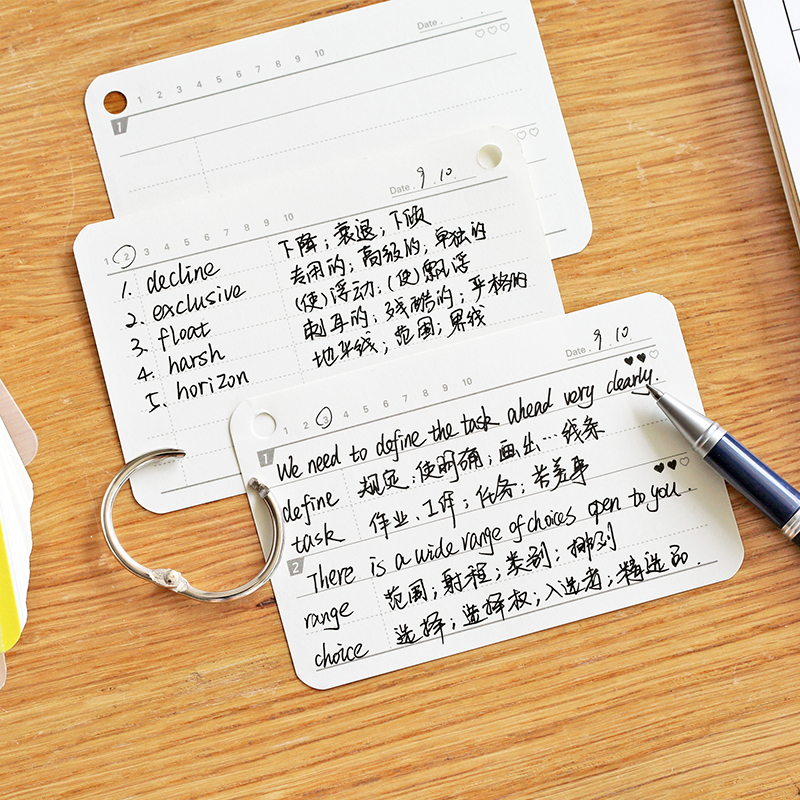 Date . . .
1 2 3 4 5 6 7 8 9 10
1
Date . 9 . 10 .
1 2 3 4 5 6 7 8 9 10
1. decline 下降；衰退；下倾
2. exclusive 专用的；高级的；单独的
3. float (使)浮动；(使)飘浮
4. harsh 刺耳的；残酷的；严格的
5. horizon 地平线；范围；界线
Date . 9 . 10 .
1 2 3 4 5 6 7 8 9 10
1 We need to define the task ahead very clearly.
define 规定；使明确；画出…线条
task 作业、工作；任务；苦差事
2 There is a wide range of choices open to you.
range 范围；射程；类别；排列
choice 选择；选择权；入选者；精选品.